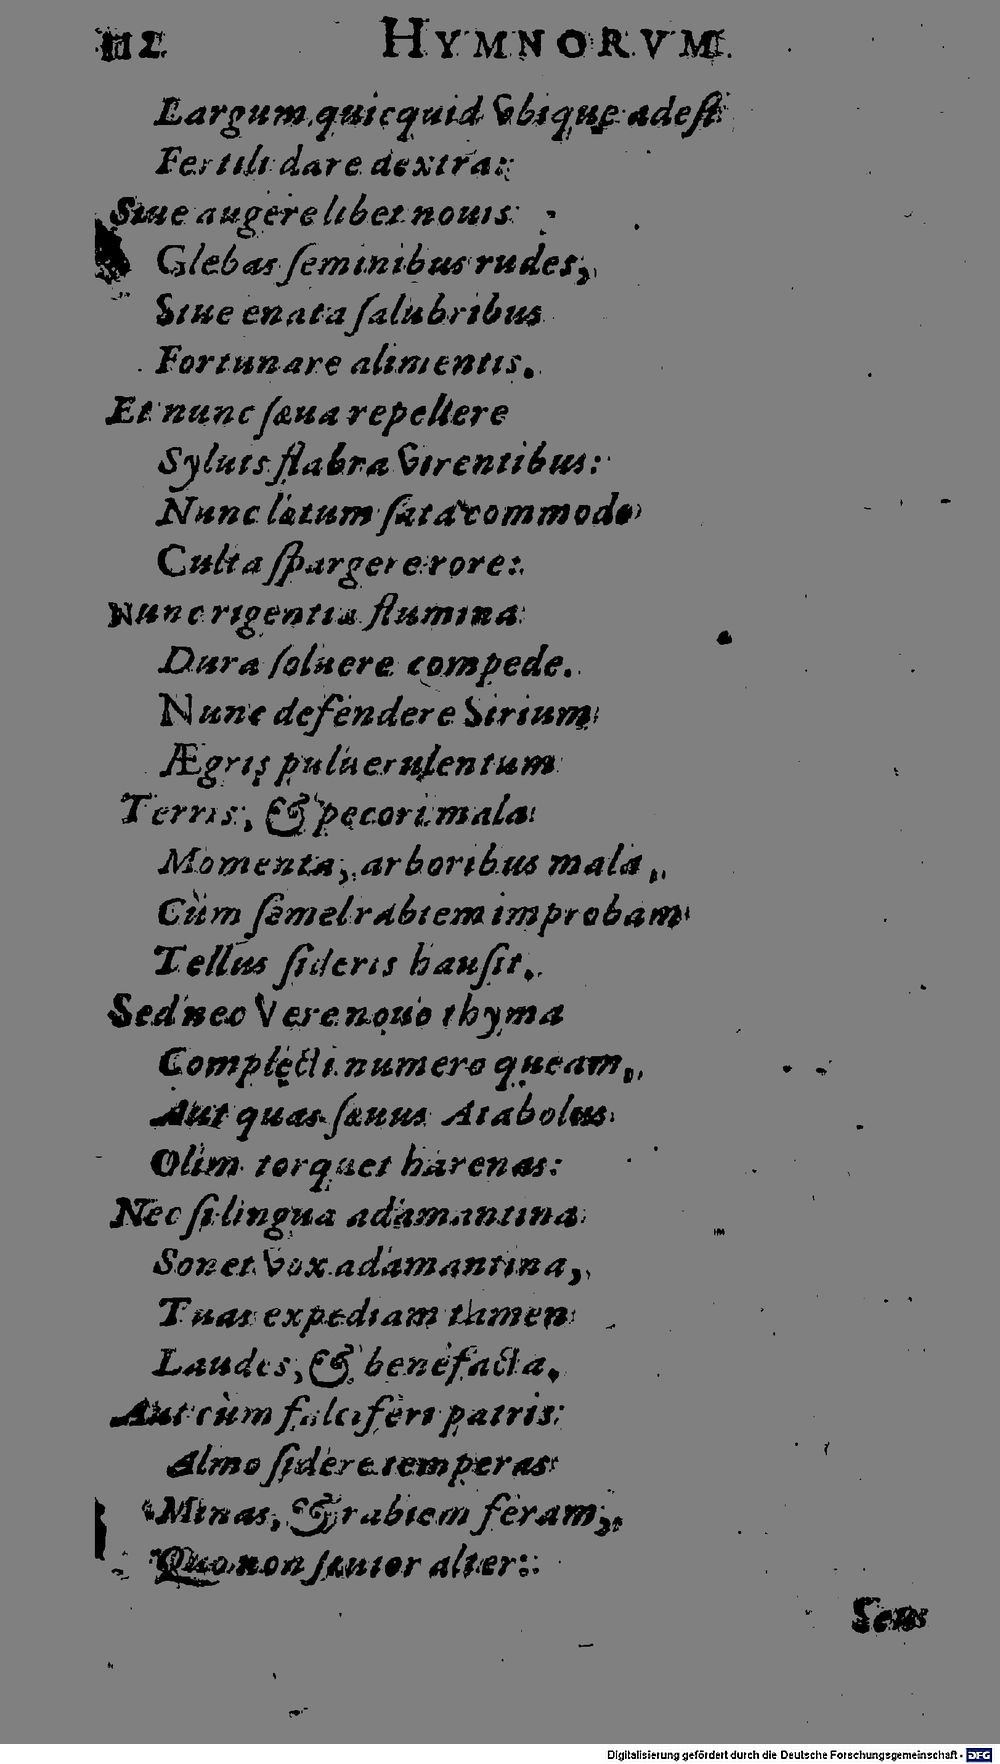 112 HYMNORVM.
Largum quicquid vbique adest
Fertili dare dextra:
Siue augere libet nouis
Glebas seminibus rudes,
Siue enata salubribus
Fortunare alimentis.
Et nunc sæua repellere
Syluis flabra virentibus:
Nunc lætum sata commodo
Culta spargere rore:
Nunc rigentia flumina
Dura soluere compede.
Nunc defendere Sirium
Ægris puluerulentum
Terris, & pecori mala
Momenta, arboribus mala,
Cùm semel rabiem improbam
Tellus sideris hausit.
Sed nec Vere nouo thyma
Complecti numero queam,
Aut quas sæuus Atabolus
Olim torquet harenas:
Nec si lingua adamantina
Sonet vox adamantina,
Tuas expediam tamen
Laudes, & benefacta.
Aut cùm falciferi patris
Almo sidere temperas
Minas, & rabiem feram,
Quo non sæuior alter:
Seus
Digitalisierung gefördert durch die Deutsche Forschungsgemeinschaft - DFG